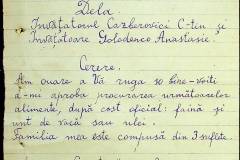 Dela
Învățatorul Cazberovici C-tin și
Învățătoare Golodenco Anastasie
Cerere.
Am onoare a Vă ruga să bine-voiți
a-mi aproba procurarea următoarelor
alimente, după cost oficial: faină și
unt de vacă sau ulei.
Familia mea este compusă din 3 suflete.